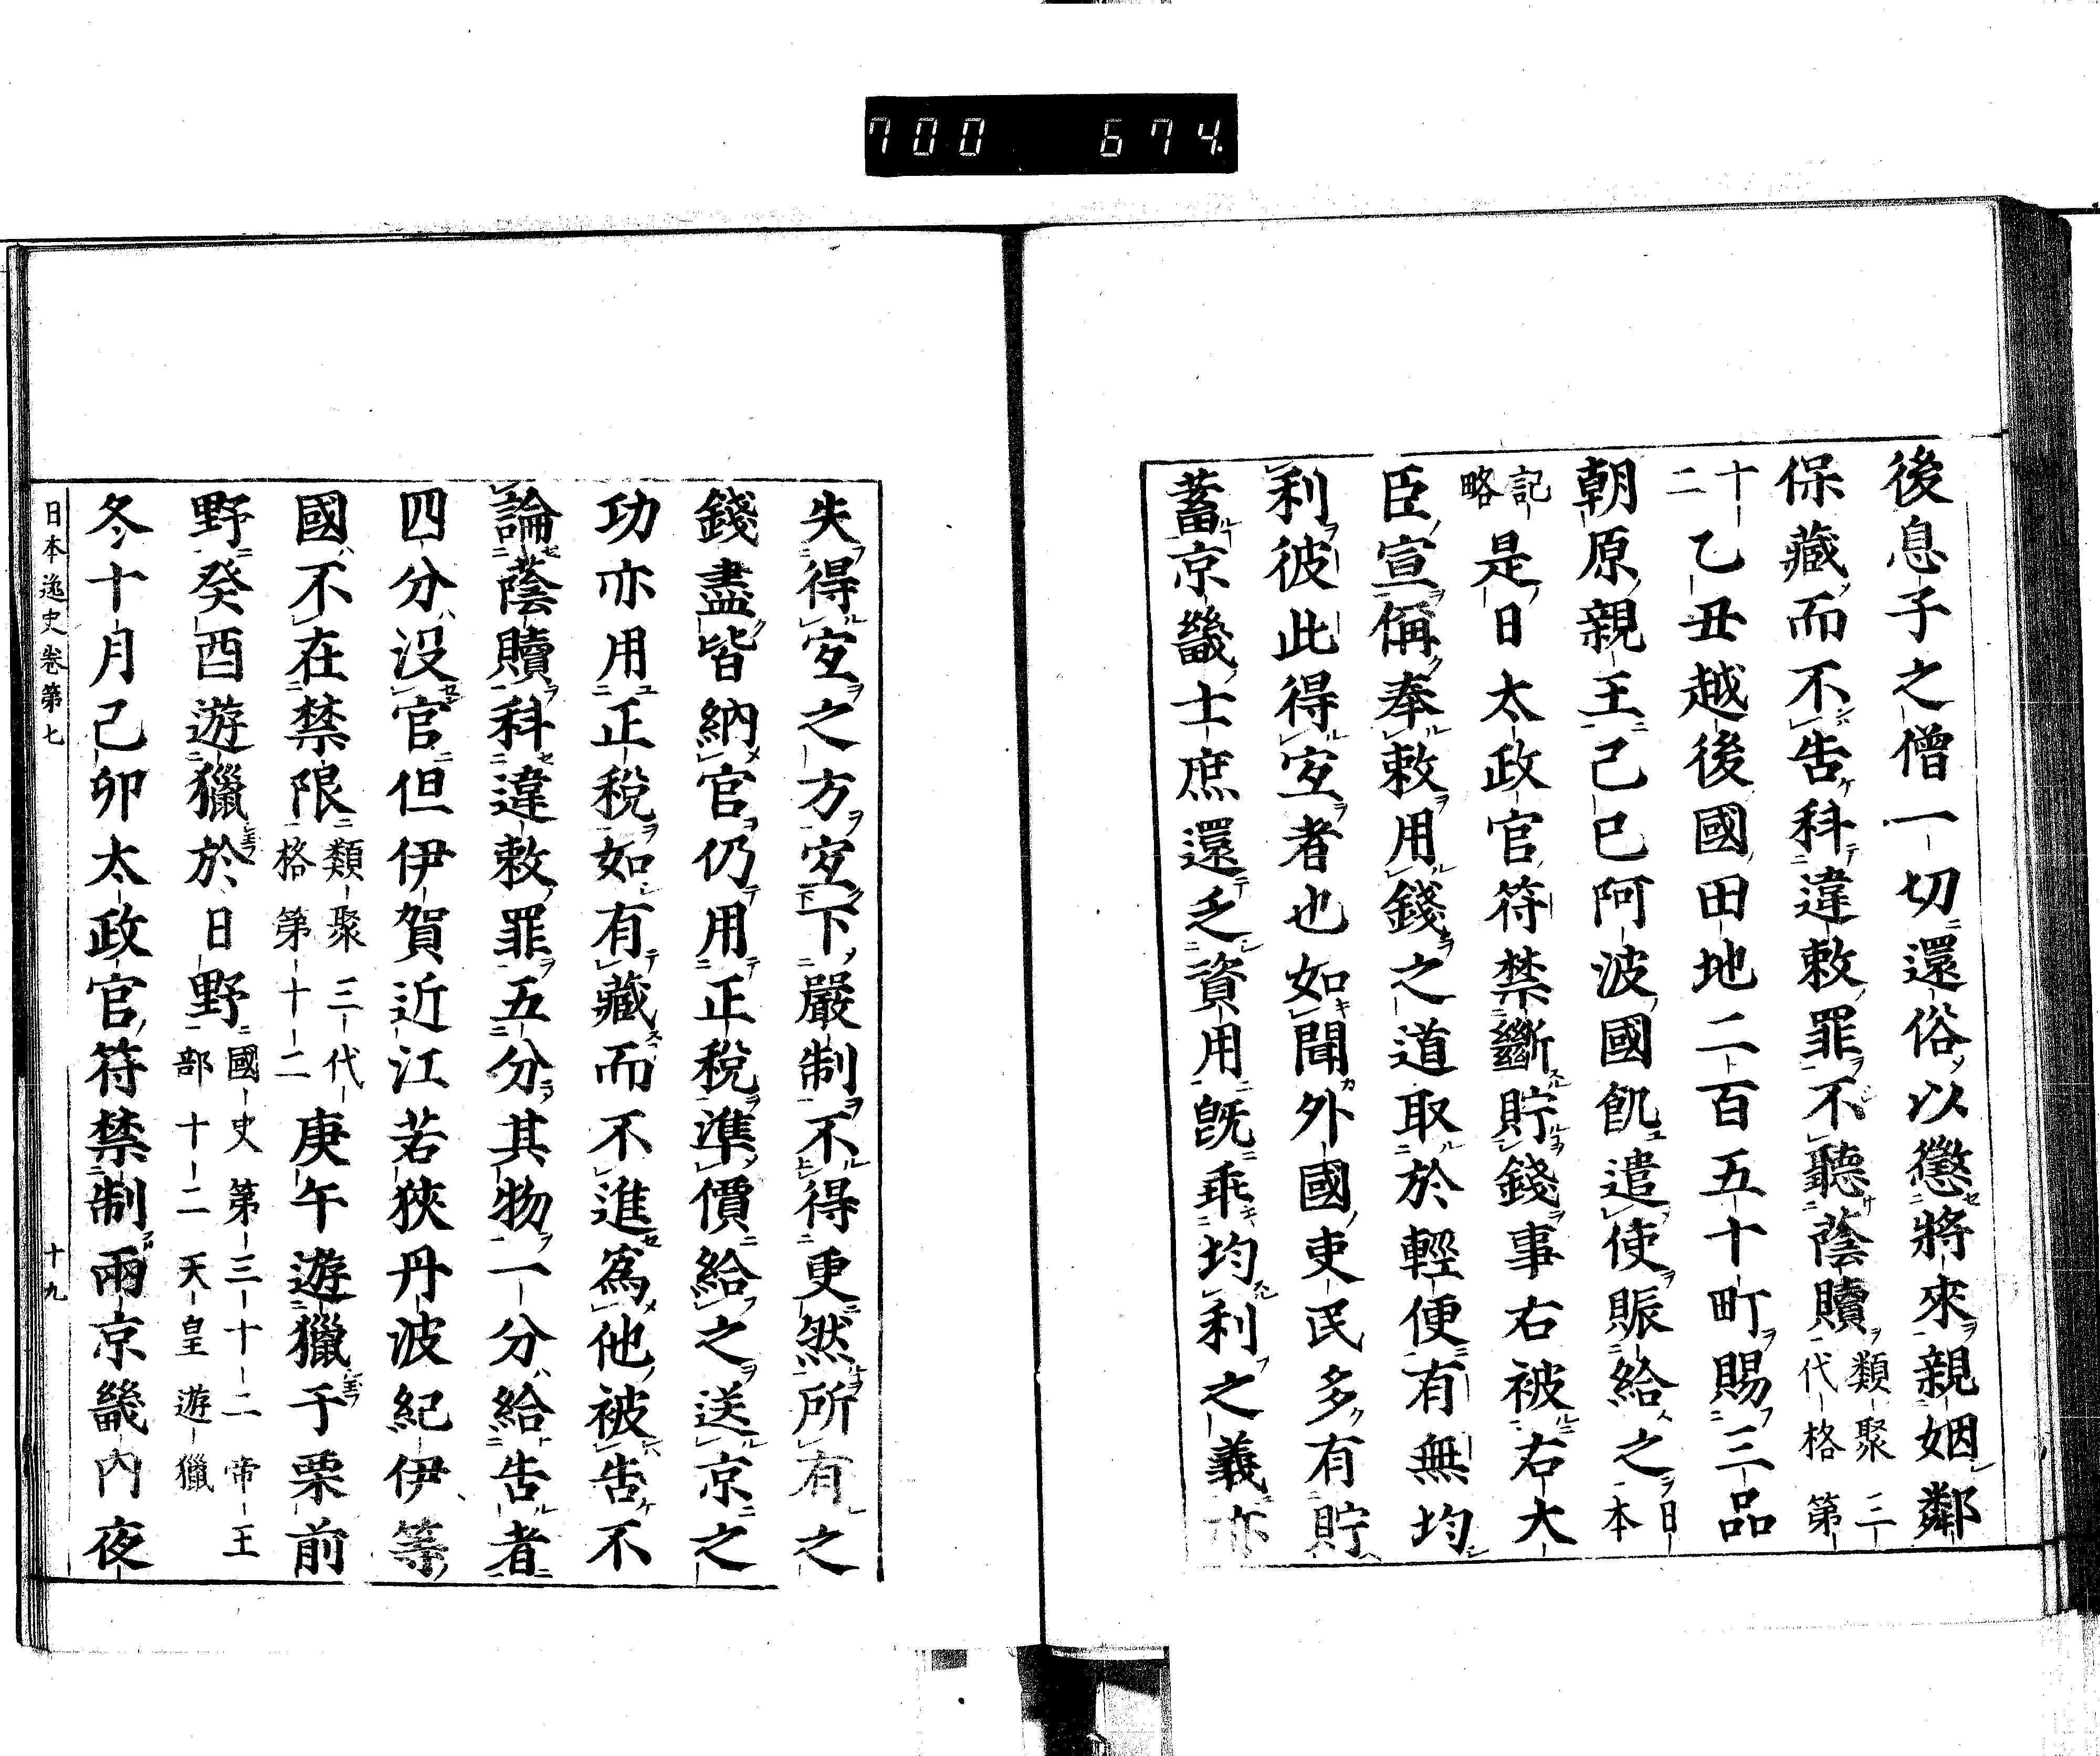 700 674
後息子之僧一切還俗以懲將來親姻鄰
保藏而不告科違敕罪不聽蔭贖類聚三代格第
十二乙丑越後國田地二百五十町賜三品
朝原親王己巳阿波國飢遣使賑給之日本
記略是日太政官符禁斷貯錢事右被右大
臣宣偁奉敕用錢之道取於輕便有無均
利彼此得宜者也如聞外國吏民多有貯
蓄京畿士庶還乏資用既乖均利之義亦
失得宜之方宜下嚴制不得更然所有之
錢盡皆納官仍用正稅準價給之送京之
功亦用正稅如有藏而不進爲他被告不
論蔭贖科違敕罪五分其物一分給告者
四分没官但伊賀近江若狹丹波紀伊等
國不在禁限類聚三代格第十二庚午遊獵于栗前
野癸酉遊獵於日野國史第三十二帝王部十二天皇遊獵
冬十月己卯太政官符禁制兩京畿内夜
日本逸史卷第七 十九